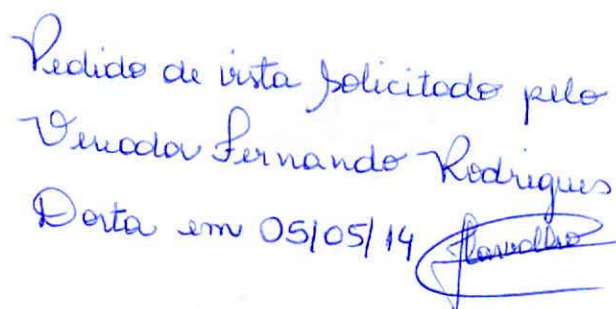 Pedido de vista solicitado pelo
Vereador Fernando Rodrigues
Dorta em 05/05/14